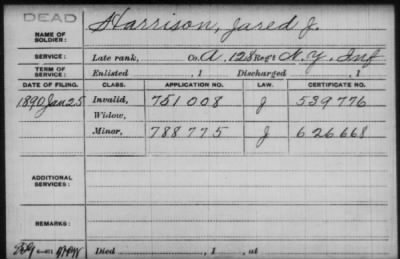 DEAD
NAME OF SOLDIER: Harrison, Jared J.
SERVICE: Late rank, Co. A, 128 Reg't N. Y. Inf
TERM OF SERVICE: Enlisted , 1 Discharged , 1
DATE OF FILING. CLASS. APPLICATION NO. LAW. CERTIFICATE NO.
1890 Jan 25 Invalid, 751008 J 539776
Widow,
Minor, 788775 J 626668
ADDITIONAL SERVICES:
REMARKS:
Died , 1 , at